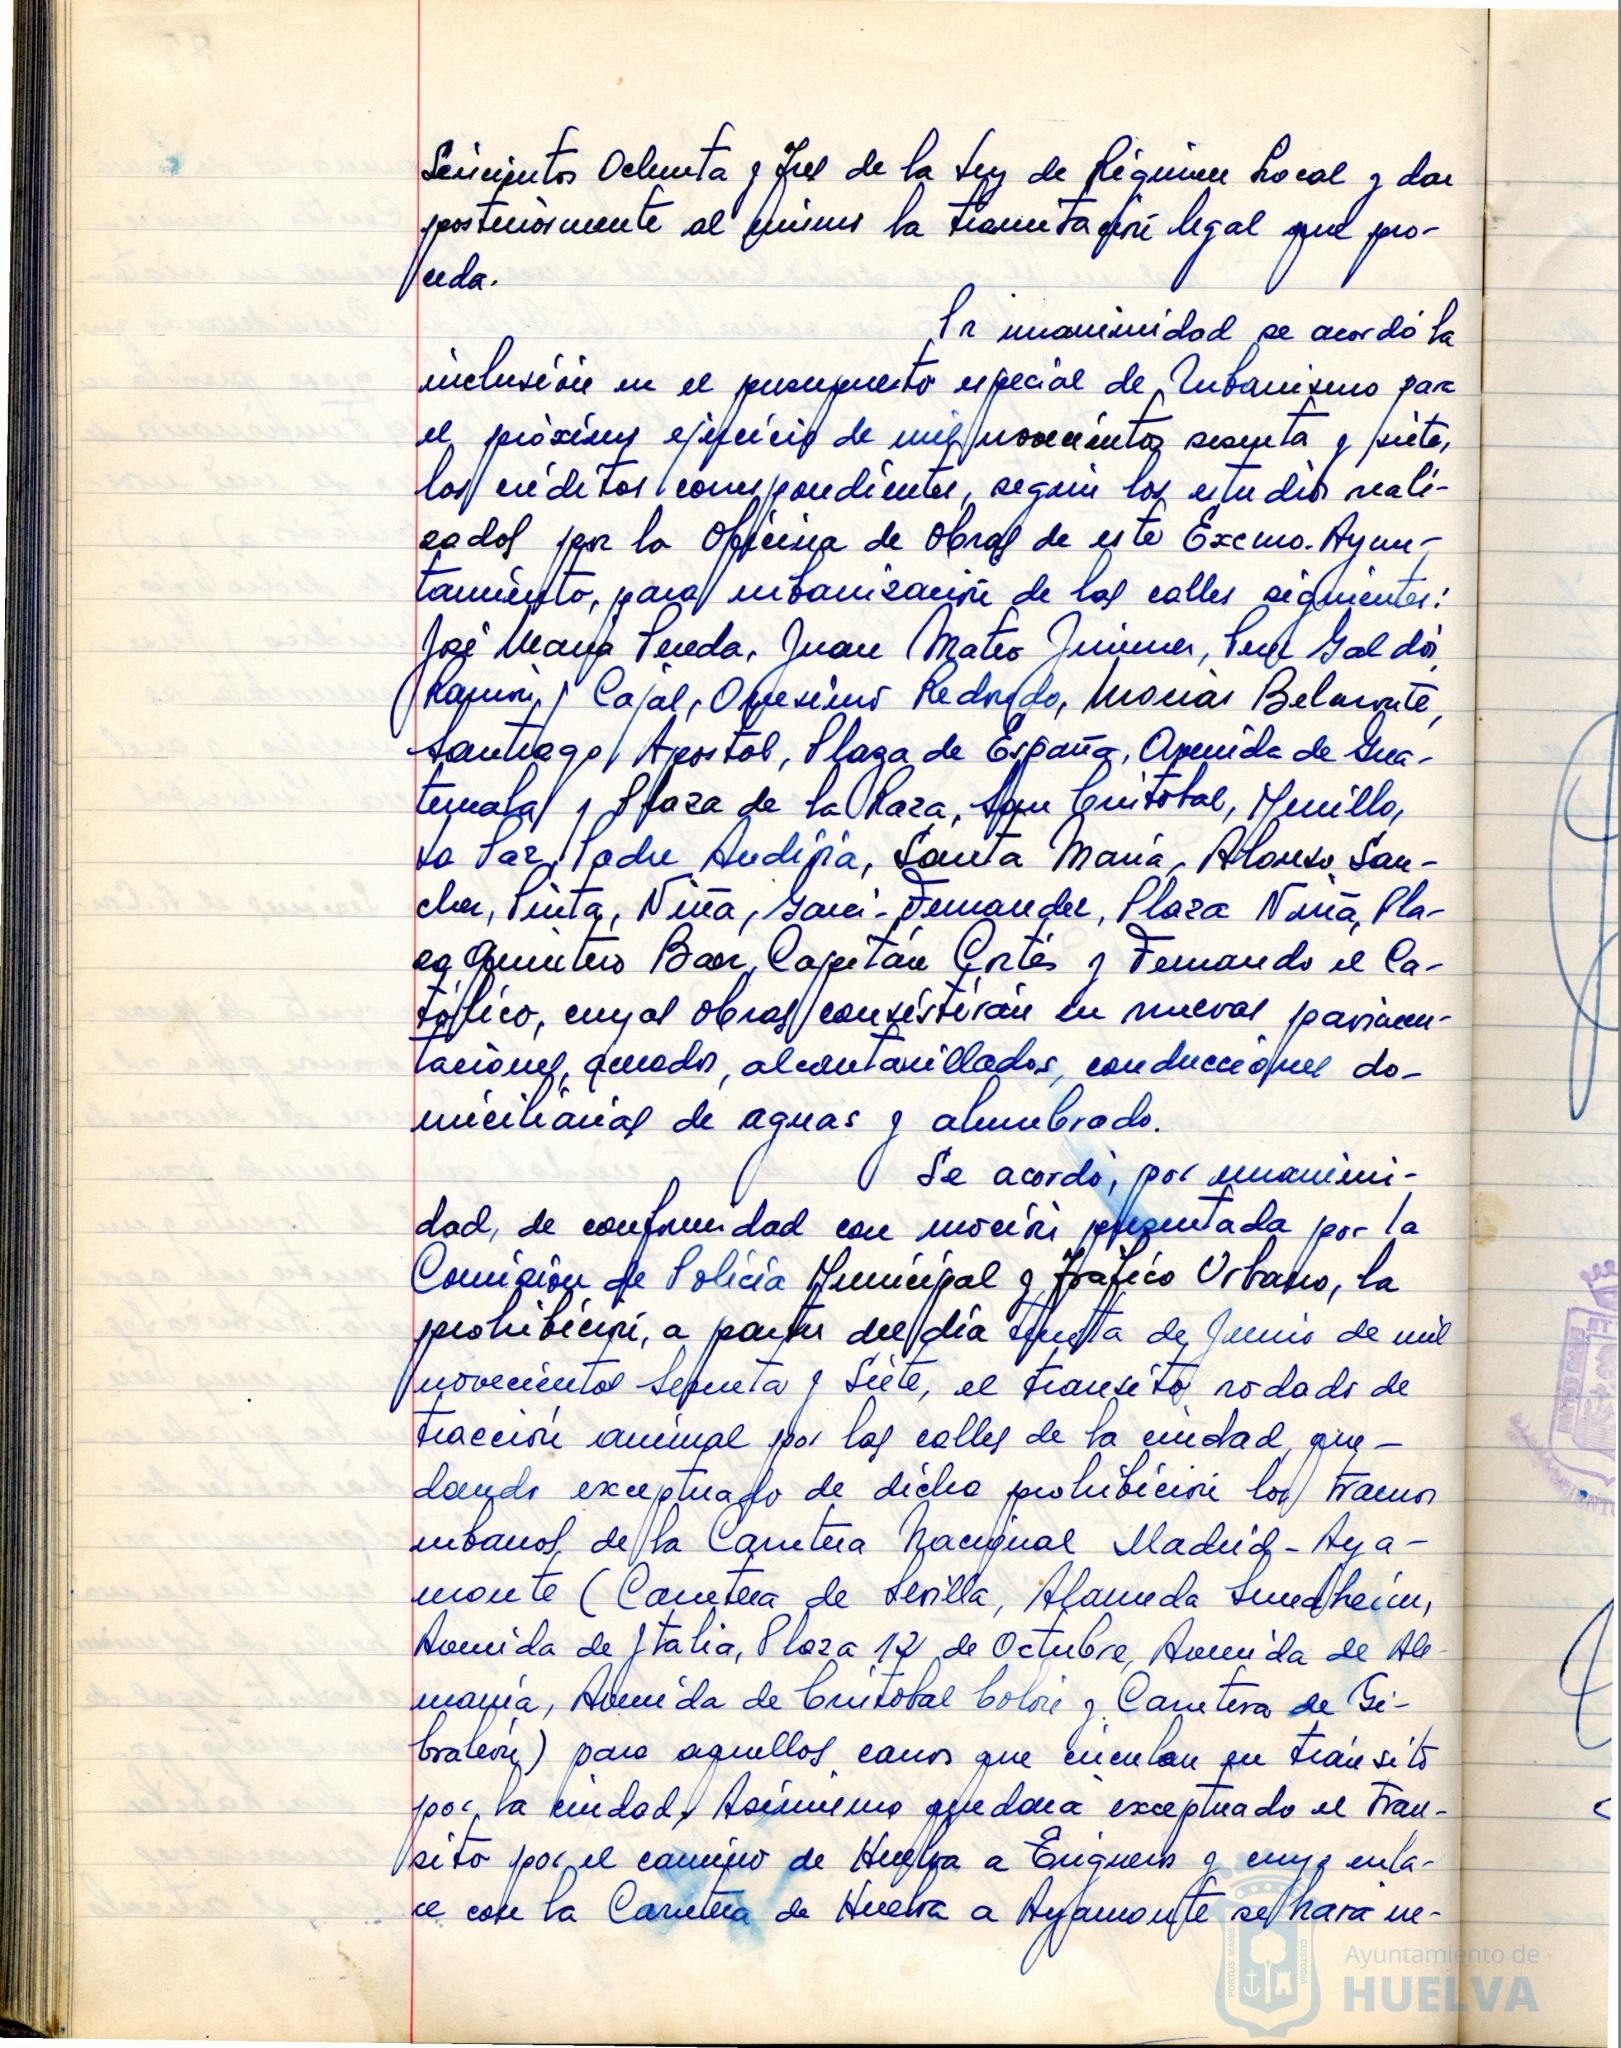 Seiscientos Ochenta y Tres de la Ley de Régimen Local y dar
posteriormente al mismo la tramitación legal que pro-
ceda.
Por unanimidad se acordó la
inclusión en el presupuesto especial de Urbanismo para
el próximo ejercicio de mil novecientos sesenta y siete,
los créditos correspondientes, según los estudios reali-
zados por la Oficina de Obras de este Excmo. Ayun-
tamiento, para urbanización de las calles siguientes:
José María Pereda, Juan Mateo Jimenez, Perez Galdós,
Ramón y Cajal, Onesimo Redondo, Macias Belmonte,
Santiago Apostol, Plaza de España, Avenida de Gua-
temala y Plaza de la Raza, San Cristobal, Murillo,
La Paz, Padre Andivia, Santa María, Alonso San-
chez, Pinta, Niña, Garci-Fernandez, Plaza Niña, Pla-
za Quintero Baez, Capitán Cortés y Fernando el Ca-
tólico, cuyas obras consistirán en nuevas pavimen-
taciones, acerados, alcantarillados, conducciones do-
miciliarias de aguas y alumbrado.
Se acordó, por unanimi-
dad, de conformidad con moción presentada por la
Comisión de Policía Municipal y Tráfico Urbano, la
prohibición, a partir del día treinta de Junio de mil
novecientos sesenta y siete, el tránsito rodado de
tracción animal por las calles de la ciudad, que-
dando exceptuado de dicha prohibición los tramos
urbanos de la Carretera Nacional Madrid-Aya-
monte (Carretera de Sevilla, Alameda Sundheim,
Avenida de Italia, Plaza 12 de Octubre, Avenida de Ale-
mania, Avenida de Cristobal Colón y Carretera de Gi-
braleón) para aquellos carros que circulan en tránsito
por la ciudad. Asimismo quedará exceptuado el tran-
sito por el camino de Huelva a y cuyo enla-
ce con la Carretera de Huelva a Ayamonte se hará ne-
Ayuntamiento de
HUELVA
PORTUS MARIS
CUSTODIA